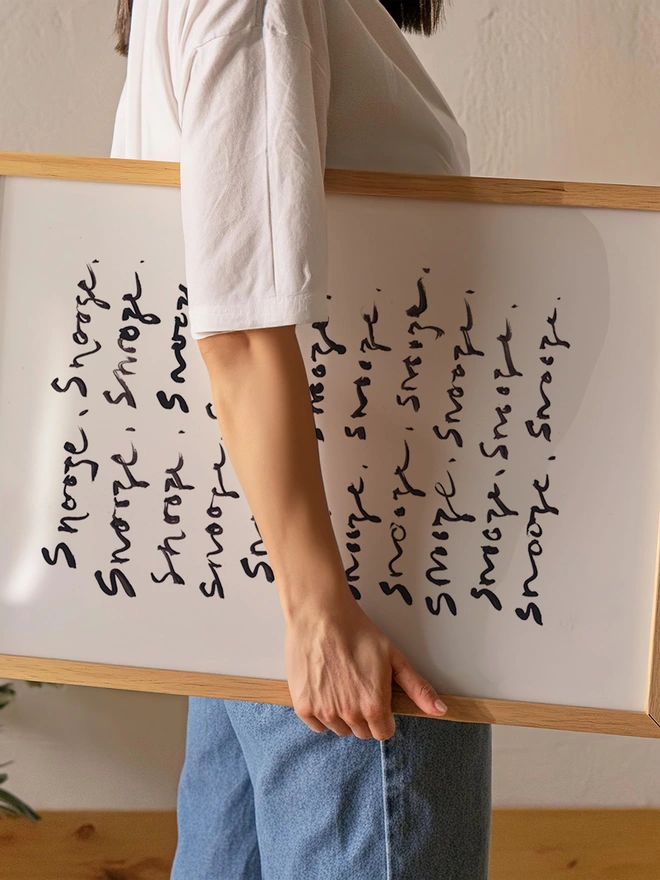 Snooze. Snooze.
Snooze. Snooze.
Snooze. Snooze
Snooze.
Snooze.
Snooze. Snooze.
Snooze. Snooze.
Snooze. Snooze.
Snooze. Snooze.
Snooze. Snooze.